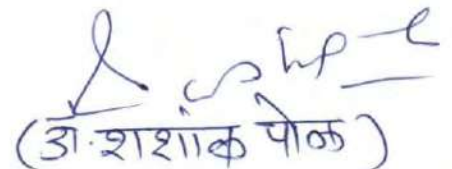 (डॉ. शशांक पोळ)